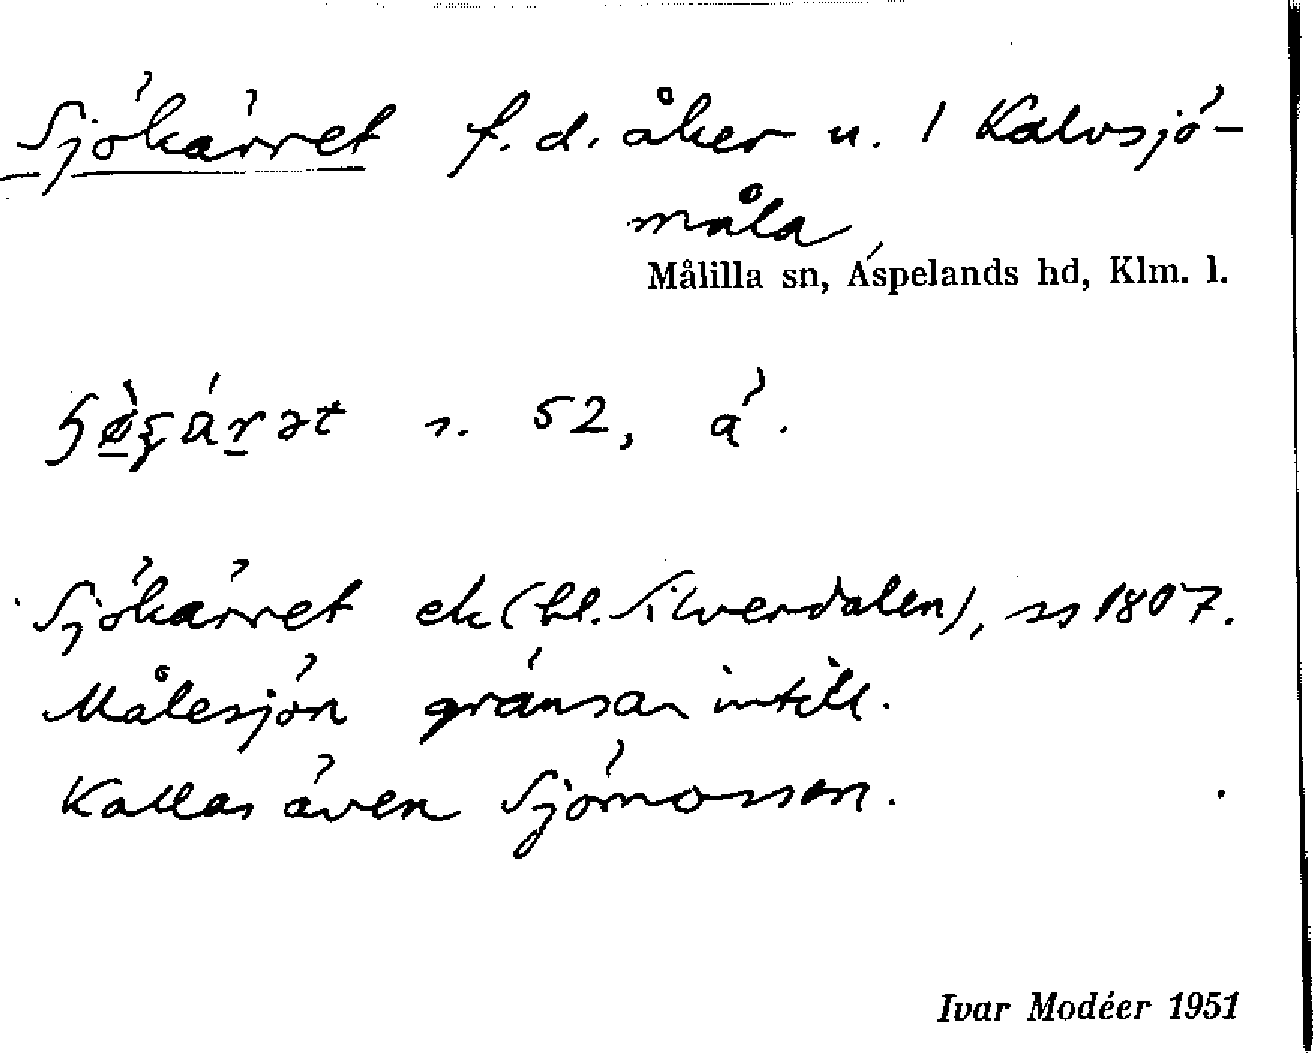 Sjökärret f.d. åker u. 1 Kalvsjö-
måla
Målilla sn, Aspelands hd, Klm. l.
s. 52, å.
Sjökärret ek (bl. Silverdalen), ss 1807.
Målesjön gränsar intill.
Kallas även Sjömossen.
Ivar Modéer 1951